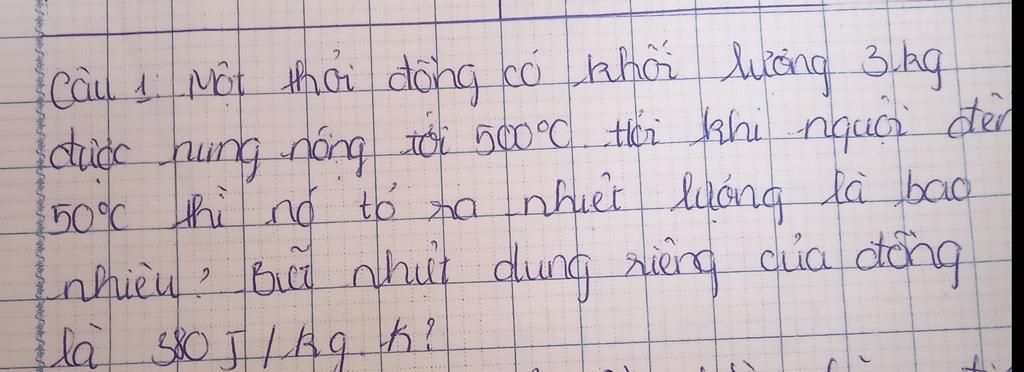 Câu 1: Một thỏi đồng có khối lượng 3 kg
được nung nóng tới 500°C tới khi nguội đến
50°C thì nó tỏ ra nhiệt lượng là bao
nhiêu? Biết nhiệt dung riêng của đồng
là 380 J/kg.k?